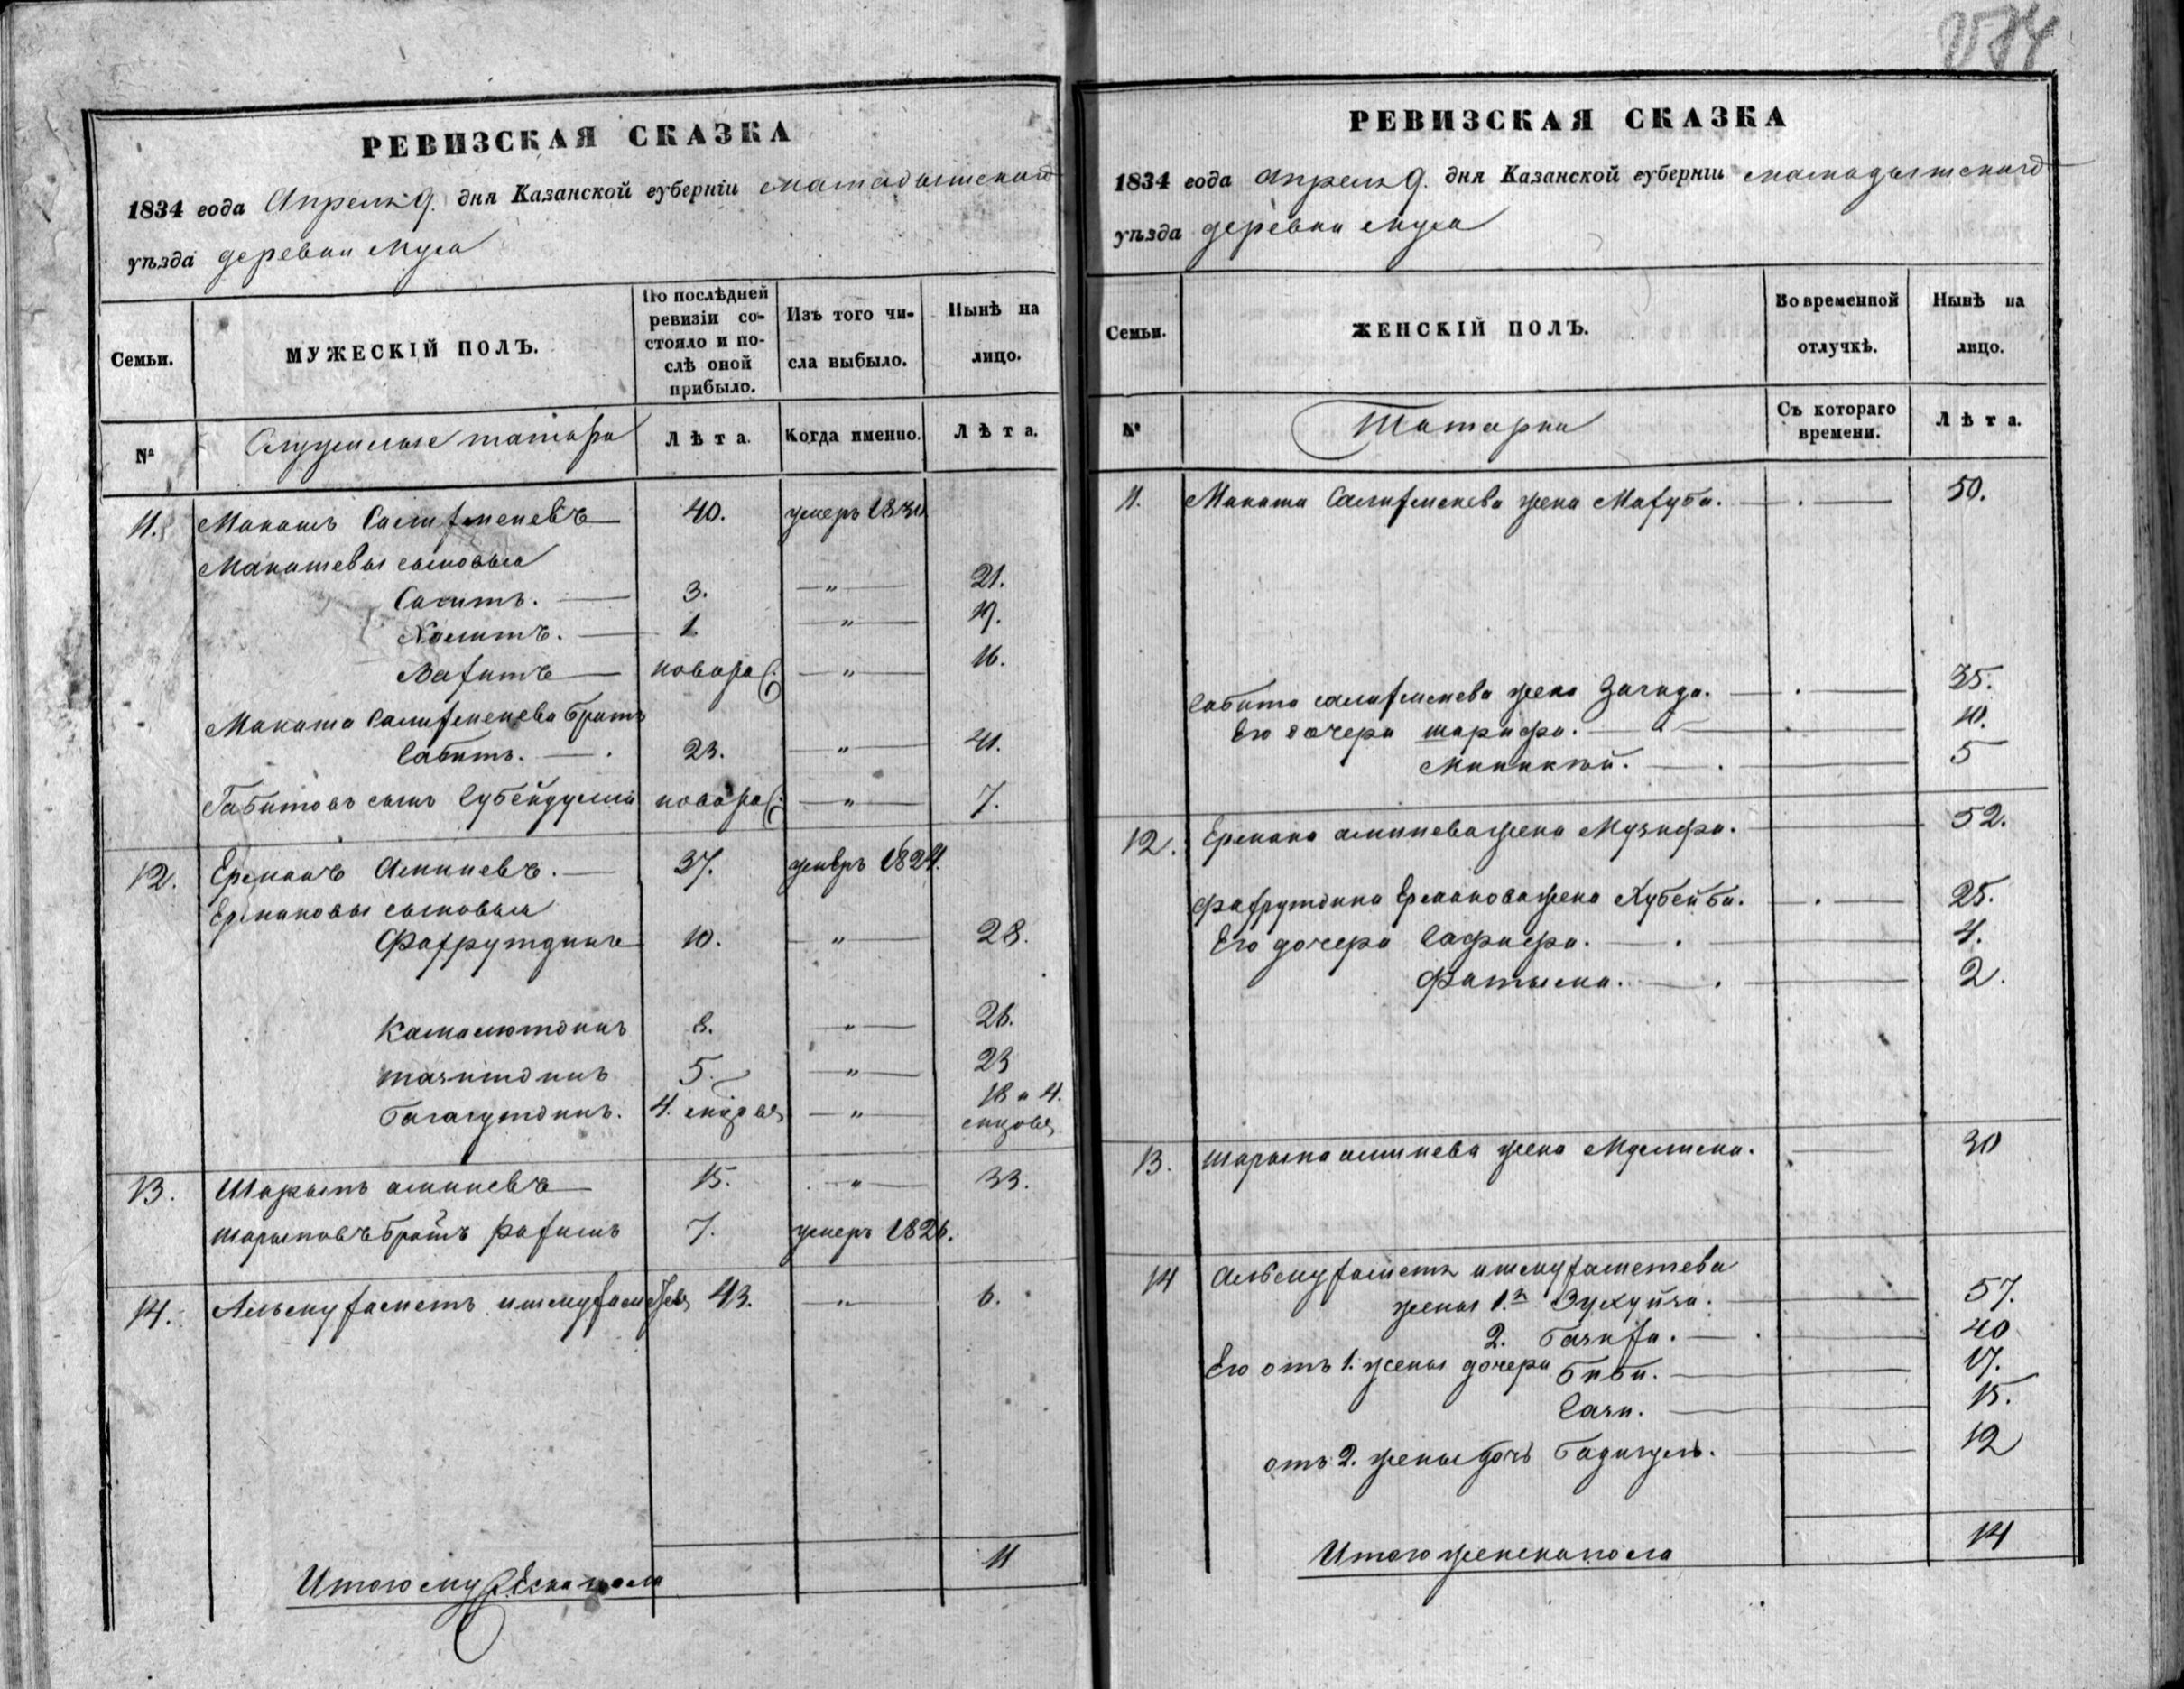 РЕВИЗСКАЯ СКАЗКА
1834 года Апреля 9. дня Казанской губерніи мамадышского
уѣзда деревни муса
Семьи.
МУЖЕСКІЙ ПОЛЪ.
По послѣдней ревизіи состояло и послѣ оной прибыло.
Изъ того числа выбыло.
Нынѣ на лицо.
№
Служилые татара
Лѣта.
Когда именно.
Лѣта.
11. Макашъ Салифменевъ 40. умеръ
Макашевы сыновья
Сагитъ. 3. " 21.
Халитъ. 1. " 19.
Вафитъ новорож. " 16.
Макаша Салифменева братъ
Сабитъ. 23. " 41.
Габитовъ сынъ Субейдулла новорож. " 7.
12. Ермакъ Аминевъ. 37. умеръ 1824.
Ермаковы сыновья
Фафрутдинъ 10. " 28.
Камалютдинъ 8. " 26.
тазитдинъ 5. " 23
Багаутдинъ. 4. " 18 и 4.
13. Шарыпъ аминевъ 15. " 33.
шарыповъ братъ Рафимъ 7. умеръ 1826.
14. Альмуфаметь ишмуфаметевъ 43. " 6.
Итого мужеска пола 11
РЕВИЗСКАЯ СКАЗКА
1834 года апреля 9. дня Казанской губерніи мамадышского
уѣзда деревни муса
Семьи.
ЖЕНСКІЙ ПОЛЪ.
Во временной отлучкѣ.
Нынѣ на лицо.
№
Татарки
Съ котораго времени.
Лѣта.
11. Макаша Салифменева жена Мафуба. 50.
Сабита салифменева жена Загида. 35.
Его дочери шарифа. 10.
5
12. Ермака аминева жена Музифа. 52.
Фафрутдина Ермакова жена Хубейба. 25.
Его дочери Сафифа. 4.
Фатыма. 2.
13. шарыпа аминева жена Муслима. 30
14 Альмуфаметя ишмуфаметева
жены 1.я 57.
2. 40
Его отъ 1. жены дочери Биби. 17.
Сази. 15.
отъ 2. жены дочь Бадигуль. 12
Итого женска пола 14